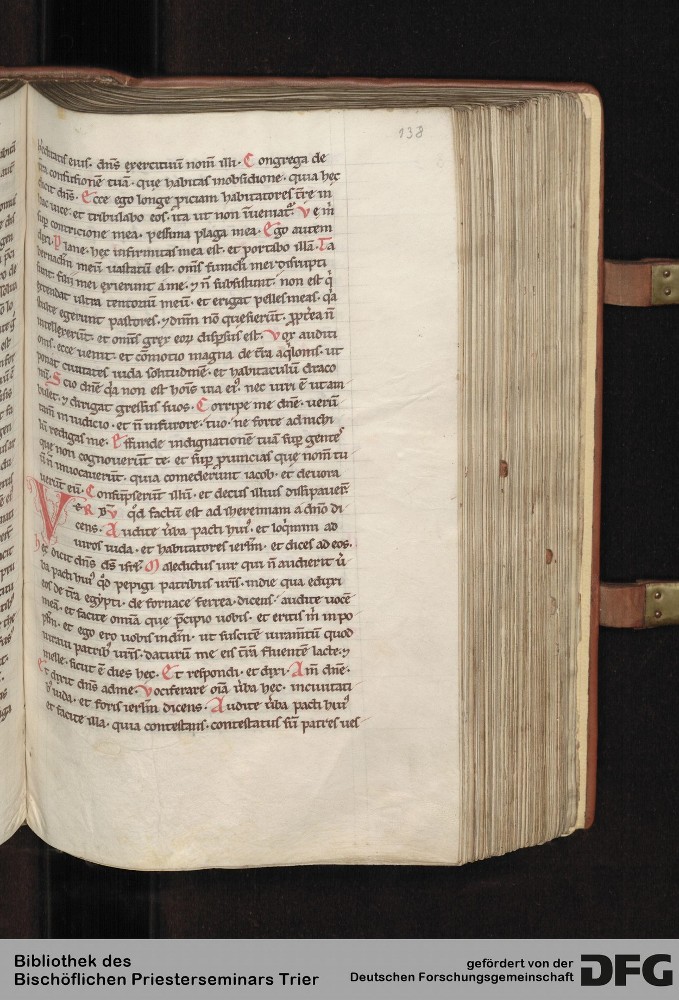 138
hereditatis eius. dns exercituum nom illi. Congrega de
tra confusionem tuā. que habitas in obsidione. quia hec
dicit dns. Ecce ego longe ꝓiciam habitatores tr̄e in
hac uice. et tribulabo eos. ita ut non īueniat̄. Ve m̄
sup contricione mea. pessima plaga mea. Ego autem
dixi. Plane. hec infirmitas mea est. et portabo illā. Ta
bernaclm meū uastatū est. oms funicli mei disrupti
sunt. filii mei exierunt a me. ⁊ ñ subsistunt. non est q̇
extendat ultra tentoriū meū. et erigat pelles meas. qa
stulte egerunt pastores. ⁊ dnm nō quesierūt. ꝓpt̄ea ñ
intellexerunt. et omīs grex eoꝝ disp̄sus est. Vox auditi
onis. ecce uenit. et cōmotio magna de t̄ra aqlonis. ut
ponat ciuitates iuda solitudinē. et habitaculū draco
nū. Scio dne qa non est hoīs uia ei9. nec uiri ē ut am
bulet. ⁊ dirigat gressus suos. Corripe me dne. uerū
tam̄ in iudicio. et ñ in furore. tuo. ne forte ad nichi
lū redigas me. Effunde indignationē tuā sup gentes
que non cognouerūt te. et sup ꝓuincias que nom̄ tu
ū ñ inuocauerūt. quia comederunt iacob. et deuora
uerūt eū. Consūpserunt illū. et decus illius dissipauer̄
VeRBV qd factū est ad iheremiam a dno di
cens. Audite ūba pacti hui9. et loqmini ad
uiros iuda. et habitatores ierlm. et dices ad eos.
hec dicit dns ds isrl. Maledictus uir qui ñ audierit ū
ba pacti hui9 qd pepigi patribus uris. in die qua eduxi
eos de t̄ra egypti. de fornace ferrea. dicens. audite uocē
meā. et facite omīa que p̄cipio uobis. et eritis m̄ in po
plm. et ego ero uobis in dm. ut suscitē iuram̄tū quod
iuraui patrib9 uris. daturū me eis t̄rā fluentē lacte. ⁊
melle. sicut ē dies hec. Et respondi. et dixi. Am̄ dne.
Et dixit dns ad me. Vociferare oīa ūba hec. in ciuitati
b9 iuda. et foris ierlm dicens. Audite ūba pacti hui9
et facite illa. quia contestans. contestatus sū patres ues
Bibliothek des
Bischöflichen Priesterseminars Trier
gefördert von der
Deutschen Forschungsgemeinschaft
DFG